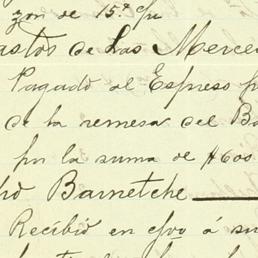 zon de 15.ª c/u
astos de Las Merce
Pagado al Espreso p
de la remesa del Ba
por la suma de $600
ro Barnetche
Recibió en efvo á su